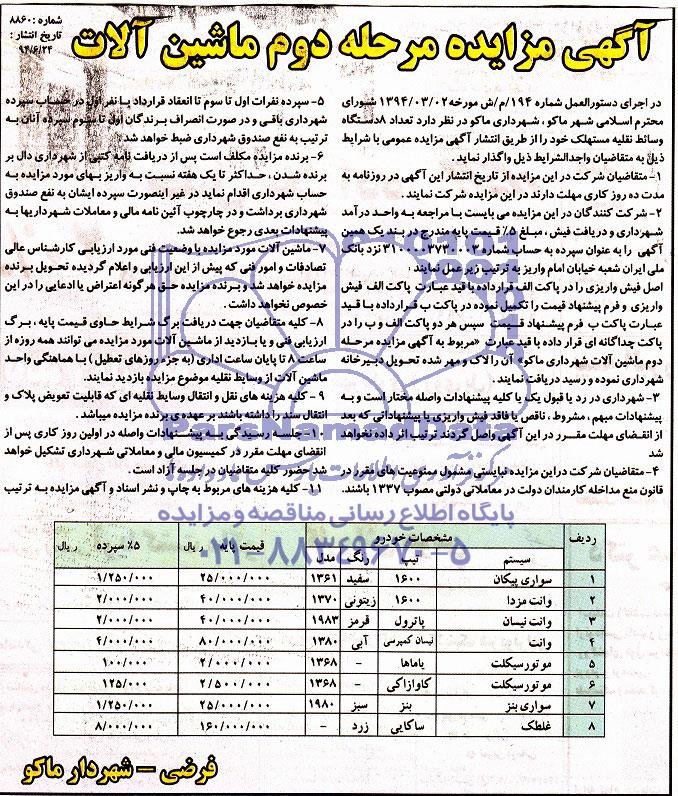 شماره : ۸۸۶۰
تاریخ انتشار :
۹۴/۶/۲۴
آگهی مزایده مرحله دوم ماشین آلات
در اجرای دستورالعمل شماره ۱۹۴/م/ش مورخه ۱۳۹۴/۰۳/۰۲ شورای
محترم اسلامی شهر ماکو ، شهرداری ماکو در نظر دارد تعداد ۸دستگاه
وسائط نقلیه مستهلک خود را از طریق انتشار آگهی مزایده عمومی با شرایط
ذیل به متقاضیان واجدالشرایط ذیل واگذار نماید.
۱- متقاضیان شرکت در این مزایده از تاریخ انتشار این آگهی در روزنامه به
مدت ده روز کاری مهلت دارند در این مزایده شرکت نمایند .
۲- شرکت کنندگان در این مزایده می بایست با مراجعه به واحد درآمد
شهرداری و دریافت فیش ، مبلغ ۵٪ قیمت پایه مندرج در بند یک همین
آگهی را به عنوان سپرده به حساب شماره نزد بانک
ملی ایران شعبه خیابان امام واریز به ترتیب زیر عمل نمایند :
اصل فیش واریزی را در پاکت الف قرارداده با قید عبارت پاکت الف فیش
واریزی و فرم پیشنهاد قیمت را تکمیل نموده در پاکت ب قرارداده با قید
عبارت پاکت ب فرم پیشنهاد قیمت سپس هر دو پاکت الف و ب را در
پاکت جداگانه ای قرار داده با قید عبارت «مربوط به آگهی مزایده مرحله
دوم ماشین آلات شهرداری ماکو» آن را لاک و مهر شده تحویل دبیرخانه
شهرداری نموده و رسید دریافت نمایند.
۳- شهرداری در رد یا قبول یک یا کلیه پیشنهادات واصله مختار است و به
پیشنهادات مبهم ، مشروط ، ناقص یا فاقد فیش واریزی یا پیشنهاداتی که بعد
از انقضای مهلت مقرر در این آگهی واصل گردند ترتیب اثر داده نخواهد
شد
۴- متقاضیان شرکت در این مزایده نبایستی مشمول ممنوعیت های مقرر در
قانون منع مداخله کارمندان دولت در معاملاتی دولتی مصوب ۱۳۳۷ باشند.
۵- سپرده نفرات اول تا سوم تا انعقاد قرارداد با نفر اول در حساب سپرده
شهرداری باقی و در صورت انصراف برندگان اول تا سوم سپرده آنان به
ترتیب به نفع صندوق شهرداری ضبط خواهد شد.
۶- برنده مزایده مکلف است پس از دریافت نامه کتبی از شهرداری دال بر
برنده شدن ، حداکثر تا یک هفته نسبت به واریز بهای مورد مزایده به
حساب شهرداری اقدام نماید در غیر اینصورت سپرده ایشان به نفع صندوق
شهرداری برداشت و در چارچوب آئین نامه مالی و معاملات شهرداریها به
پیشنهادات بعدی رجوع خواهد شد.
۷- ماشین آلات مورد مزایده با وضعیت فنی مورد ارزیابی کارشناس عالی
تصادفات و امور فنی که پیش از این ارزیابی و اعلام گردیده تحویل برنده
مزایده خواهد شد و برنده مزایده حق هرگونه اعتراض یا ادعایی را در این
خصوص نخواهد داشت .
۸- کلیه متقاضیان جهت دریافت برگ شرایط حاوی قیمت پایه ، برگ
ارزیابی فنی و یا بازدید از ماشین آلات مورد مزایده می توانند همه روزه از
ساعت ۸ تا پایان ساعت اداری (به جزء روزهای تعطیل ) با هماهنگی واحد
ماشین آلات از وسایط نقلیه موضوع مزایده بازدید نمایند.
۹ - کلیه هزینه های نقل و انتقال وسایط نقلیه ای که قابلیت تعویض پلاک و
انتقال سند را داشته باشند بر عهده ی برنده مزایده میباشد .
۱۰- جلسه رسیدگی به پیشنهادات واصله در اولین روز کاری پس از
انقضای مهلت مقرر در کمیسیون مالی و معاملاتی شهرداری تشکیل خواهد
شد حضور کلیه متقاضیان در جلسه آزاد است .
۱۱- کلیه هزینه های مربوط به چاپ و نشر اسناد و آگهی مزایده به ترتیب
ParsNamadData
پایگاه اطلاع رسانی مناقصه و مزایده
۰۲۱-۸۸۳۴۹۶۷۰-۵
ردیف مشخصات خودرو قیمت پایه ریال ۵٪ سپرده ریال
سیستم تیپ رنگ مدل
۱ سواری پیکان ۱۶۰۰ سفید ۱۳۶۱ ۲۵/۰۰۰/۰۰۰ ۱/۲۵۰/۰۰۰
۲ وانت مزدا ۱۶۰۰ زیتونی ۱۳۷۰ ۴۰/۰۰۰/۰۰۰ ۲/۰۰۰/۰۰۰
۳ وانت نیسان پاترول قرمز ۱۹۸۳ ۴۰/۰۰۰/۰۰۰ ۲/۰۰۰/۰۰۰
۴ وانت نیسان کمپرسی آبی ۱۳۸۰ ۸۰/۰۰۰/۰۰۰ ۴/۰۰۰/۰۰۰
۵ موتورسیکلت یاماها - ۱۳۶۸ ۲/۰۰۰/۰۰۰ ۱۰۰/۰۰۰
۶ موتورسیکلت کاوازاکی - ۱۳۶۸ ۲/۵۰۰/۰۰۰ ۱۲۵/۰۰۰
۷ سواری بنز بنز سبز ۱۹۸۰ ۲۵/۰۰۰/۰۰۰ ۱/۲۵۰/۰۰۰
۸ غلطک ساکایی زرد - ۱۶۰/۰۰۰/۰۰۰ ۸/۰۰۰/۰۰۰
فرضی - شهردار ماکو